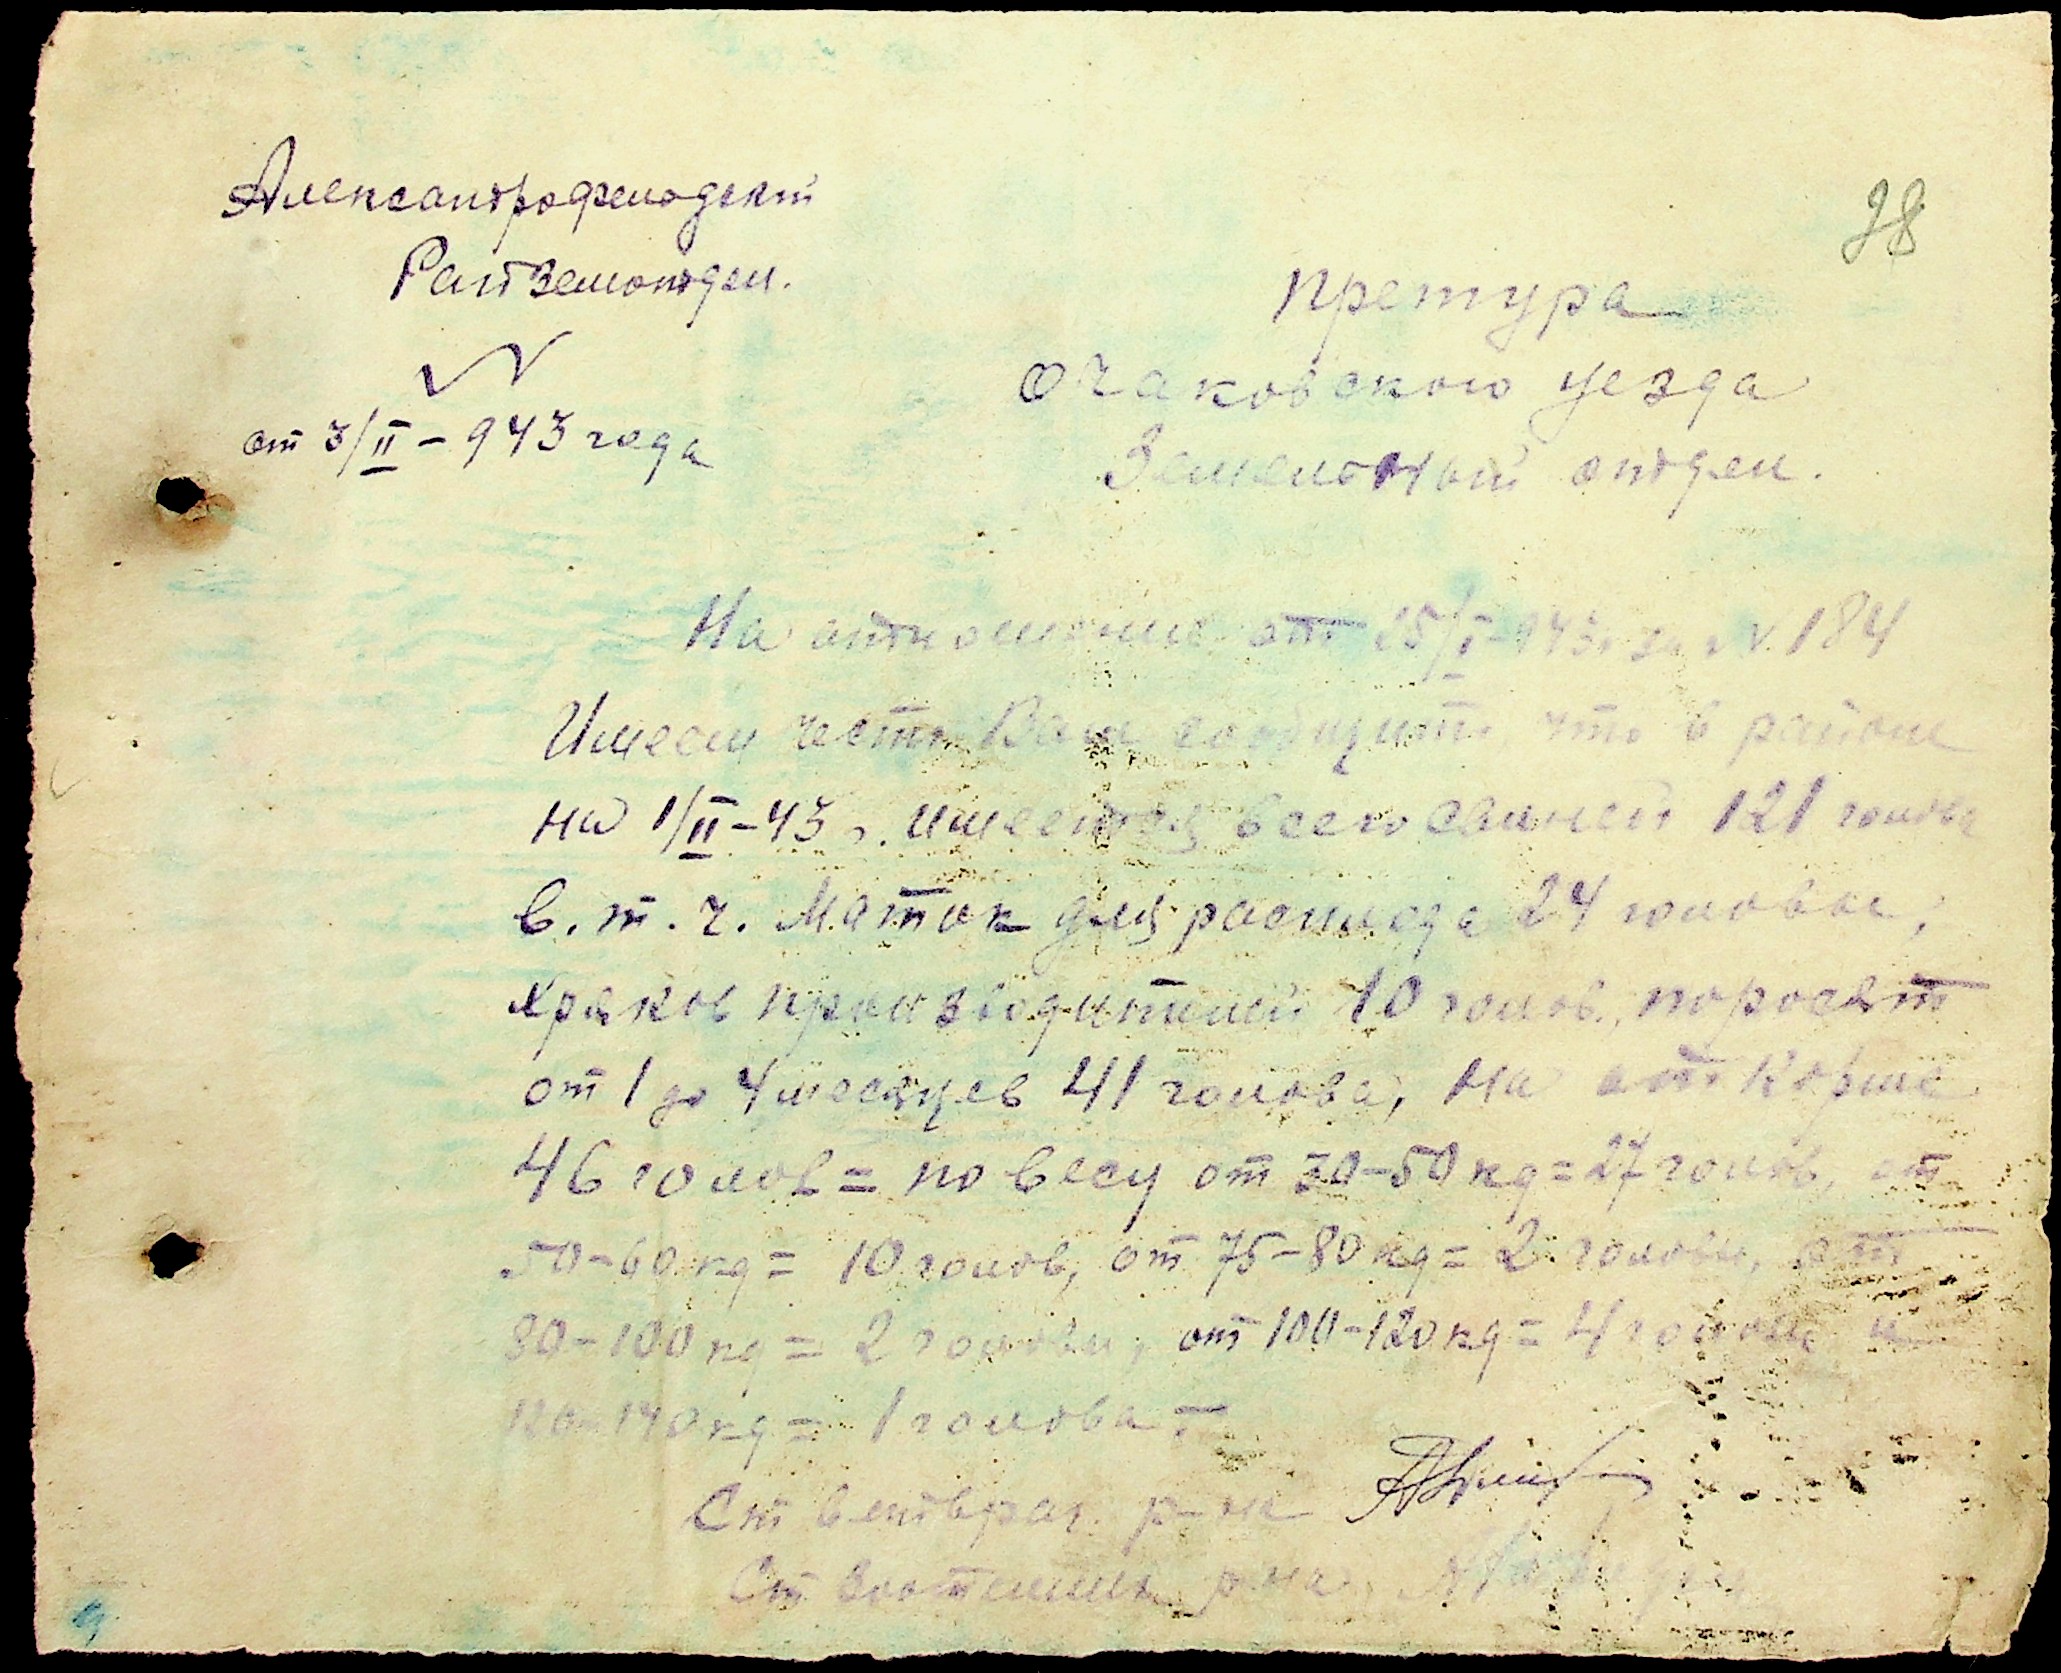 Александрофельдский
Райземотдел.
38
N
от 3/II – 943 года
Претура
Очаковского уезда
Земельный отдел.
На отношение от 25/I–943 г. за N. 184
Имеем честь Вам сообщить, что в районе
на 1/II – 43 г. имеется всего свиней 121 голова
в. т. ч. Маток для расплода 24 головы,
хряков производителей 10 голов, поросят
от 1 до 4 месяцев 41 голова, на откорме
46 голов = по весу от 30–50 кg = 27 голов, от
50–60 кg = 10 голов, от 75–80 кg = 2 головы, от
80–100 кg = 2 головы, от 100–120 кg = 4 головы и
120–140 кg = 1 голова. –
Ст ветврач р-на
Ст Зоотехник р-на